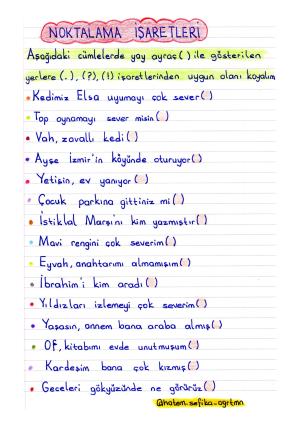 NOKTALAMA İŞARETLERİ
Aşağıdaki cümlelerde yay ayraç ( ) ile gösterilen
yerlere (.), (?), (!) işaretlerinden uygun olanı koyalım
• Kedimiz Elsa uyumayı çok sever( )
• Top oynamayı sever misin( )
• Vah, zavallı kedi( )
• Ayşe İzmir'in köyünde oturuyor( )
• Yetişin, ev yanıyor( )
• Çocuk parkına gittiniz mi( )
• İstiklal Marşı'nı kim yazmıştır( )
• Mavi rengini çok severim( )
• Eyvah, anahtarımı almamışım( )
• İbrahim'i kim aradı( )
• Yıldızları izlemeyi çok severim( )
• Yaşasın, annem bana araba almış( )
• OF, kitabımı evde unutmuşum( )
• Kardeşim bana çok kızmış( )
• Geceleri gökyüzünde ne görürüz( )
@hatem_sefika_ogrtmn